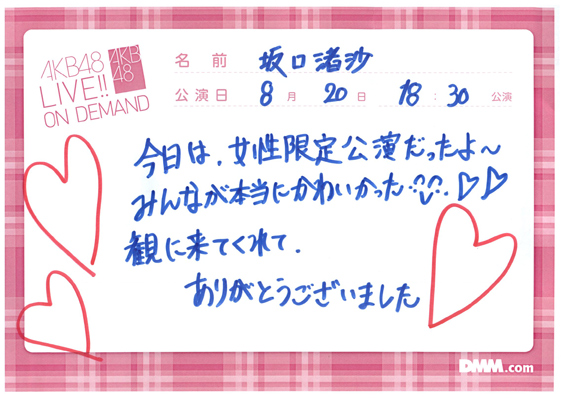 AKB48
LIVE!!
ON DEMAND
AKB
48
名前 坂口渚沙
公演日 8月 20日 18:30 公演
今日は、女性限定公演だったよ〜
みんなが本当にかわいかった
観に来てくれて、
ありがとうございました
DMM.com